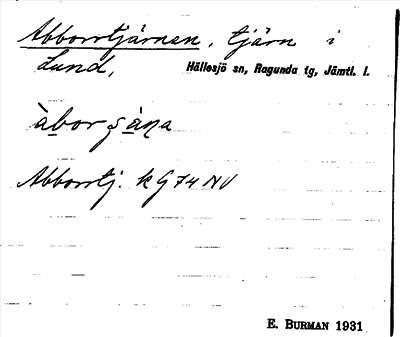 Abborrtjärnen, tjärn i
Lund, Hällesjö sn, Ragunda tg, Jämtl. l.
àborʂäṇa
Abborrtj. k G 74 NV
E. BURMAN 1931